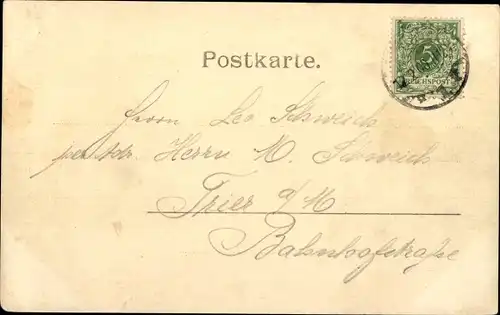 Postkarte.
5
REICHSPOST
Herrn Leo Schweich
per Adr. Herrn M. Schweich
Trier a/M.
Bahnhofstraße